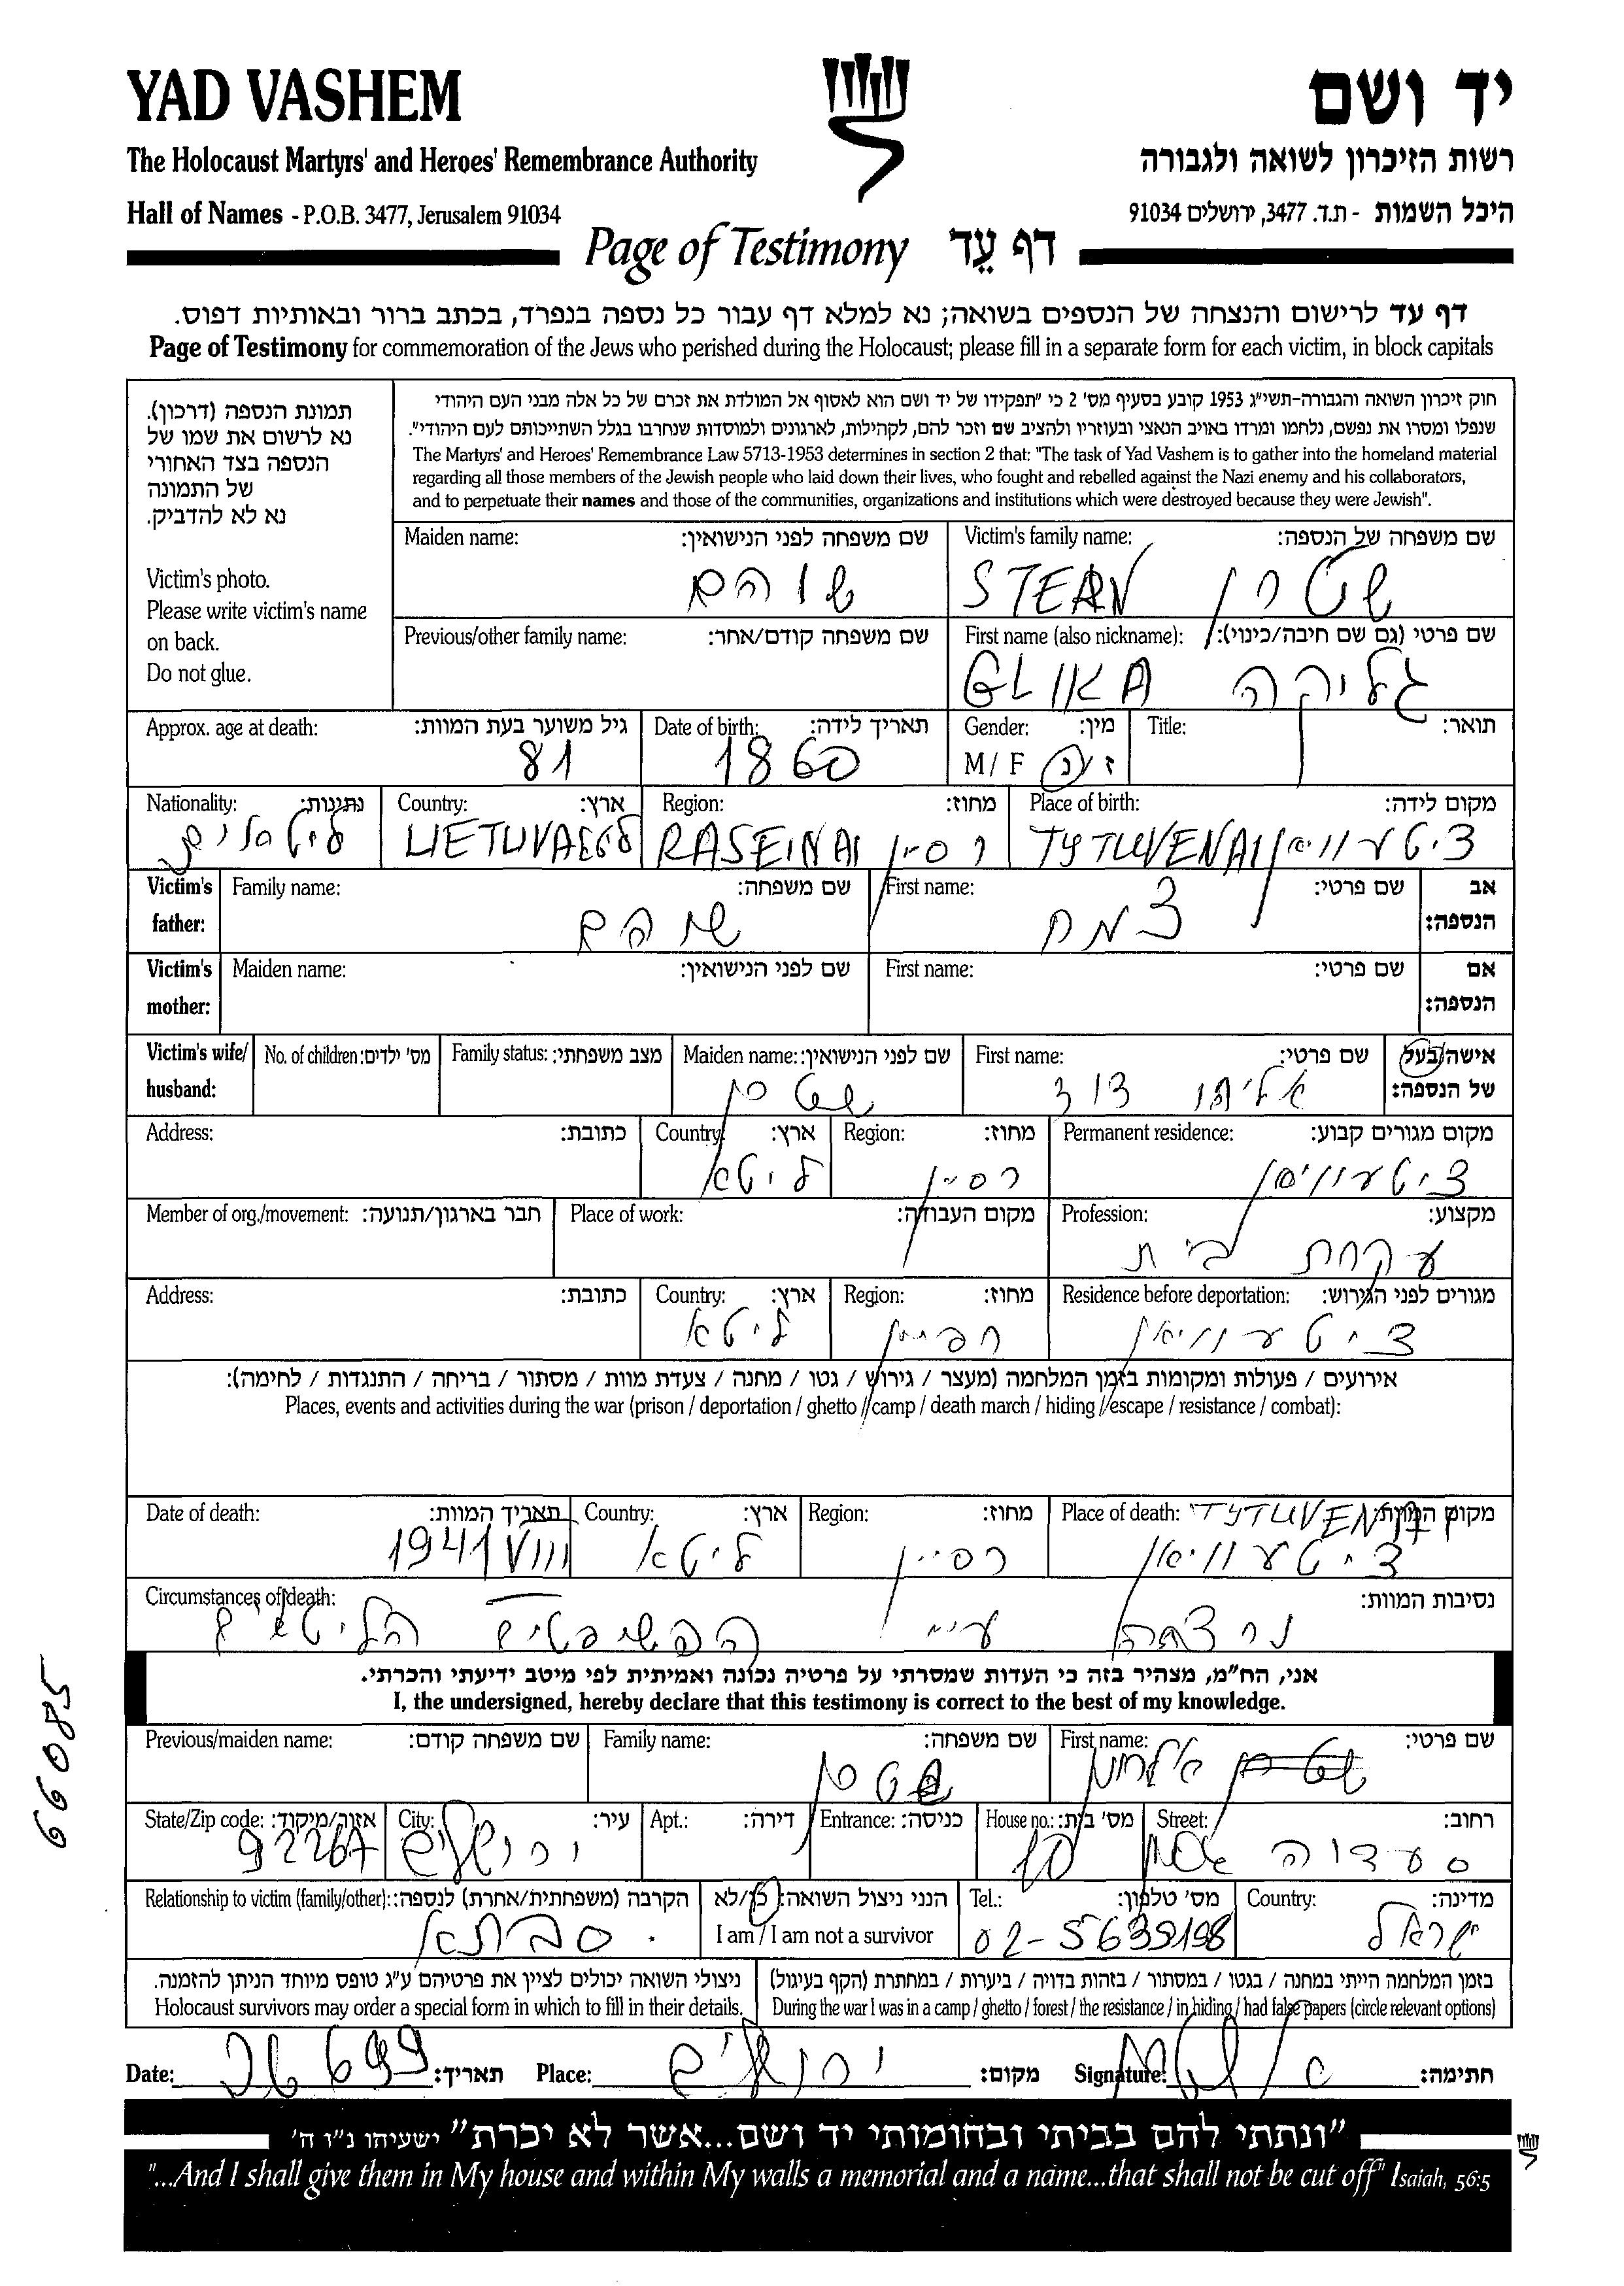 YAD VASHEM
יד ושם
The Holocaust Martyrs' and Heroes' Remembrance Authority
רשות הזיכרון לשואה ולגבורה
Hall of Names - P.O.B. 3477, Jerusalem 91034
היכל השמות - ת.ד. 3477, ירושלים 91034
Page of Testimony דף עֵד
דף עד לרישום והנצחה של הנספים בשואה; נא למלא דף עבור כל נספה בנפרד, בכתב ברור ובאותיות דפוס.
Page of Testimony for commemoration of the Jews who perished during the Holocaust; please fill in a separate form for each victim, in block capitals
תמונת הנספה (דרכון).
נא לרשום את שמו של
הנספה בצד האחורי
של התמונה
נא לא להדביק.
Victim's photo.
Please write victim's name
on back.
Do not glue.
חוק זיכרון השואה והגבורה-תשי"ג 1953 קובע בסעיף מס' 2 כי "תפקידו של יד ושם הוא לאסוף אל המולדת את זכרם של כל אלה מבני העם היהודי
שנפלו ומסרו את נפשם, נלחמו ומרדו באויב הנאצי ובעוזריו ולהציב שם וזכר להם, לקהילות, לארגונים ולמוסדות שנחרבו בגלל השתייכותם לעם היהודי".
The Martyrs' and Heroes' Remembrance Law 5713-1953 determines in section 2 that: "The task of Yad Vashem is to gather into the homeland material
regarding all those members of the Jewish people who laid down their lives, who fought and rebelled against the Nazi enemy and his collaborators,
and to perpetuate their names and those of the communities, organizations and institutions which were destroyed because they were Jewish".
Maiden name: שם משפחה לפני הנישואין: Victim's family name: שם משפחה של הנספה:
שוהם STERN שטרן
Previous/other family name: שם משפחה קודם/אחר: First name (also nickname): שם פרטי (גם שם חיבה/כינוי):
GLIKA גליקה
Approx. age at death: גיל משוער בעת המוות: Date of birth: תאריך לידה: Gender: מין: Title: תואר:
81 1860 M/F ז/נ
Nationality: נתינות: Country: ארץ: Region: מחוז: Place of birth: מקום לידה:
LIETUVA RASEINAI רסיין TYTUVENAI ציטעוויאן
Victim's father: Family name: שם משפחה: First name: שם פרטי: אב הנספה:
שוהם צמח
Victim's mother: Maiden name: שם לפני הנישואין: First name: שם פרטי: אם הנספה:
Victim's wife/ husband: No. of children: מס' ילדים: Family status: מצב משפחתי: Maiden name: שם לפני הנישואין: First name: שם פרטי: אישה/בעל של הנספה:
שטרן אליהו
Address: כתובת: Country: ארץ: Region: מחוז: Permanent residence: מקום מגורים קבוע:
ליטא רסיין ציטעוויאן
Member of org./movement: חבר בארגון/תנועה: Place of work: מקום העבודה: Profession: מקצוע:
עקרת בית
Address: כתובת: Country: ארץ: Region: מחוז: Residence before deportation: מגורים לפני הגירוש:
ליטא רסיין ציטעוויאן
אירועים / פעולות ומקומות בזמן המלחמה (מעצר / גירוש / גטו / מחנה / צעדת מוות / מסתור / בריחה / התנגדות / לחימה):
Places, events and activities during the war (prison / deportation / ghetto / camp / death march / hiding / escape / resistance / combat):
Date of death: תאריך המוות: Country: ארץ: Region: מחוז: Place of death: מקום המוות:
1941 VIII ליטא רסיין TYTUVENAI ציטעוויאן
Circumstances of death: נסיבות המוות:
נרצחה ע"י הפשיסטים הליטאים
אני, הח"מ, מצהיר בזה כי העדות שמסרתי על פרטיה נכונה ואמיתית לפי מיטב ידיעתי והכרתי.
I, the undersigned, hereby declare that this testimony is correct to the best of my knowledge.
66085
Previous/maiden name: שם משפחה קודם: Family name: שם משפחה: First name: שם פרטי:
שטרן אלחנן
State/Zip code: אזור/מיקוד: City: עיר: Apt.: דירה: Entrance: כניסה: House no.: מס' בית: Street: רחוב:
92267 ירושלים 10 סעדיה
Relationship to victim (family/other): הקרבה (משפחתית/אחרת) לנספה: הנני ניצול השואה: כן/לא Tel.: מס' טלפון: Country: מדינה:
סבתא I am / I am not a survivor ישראל
ניצולי השואה יכולים לציין את פרטיהם ע"ג טופס מיוחד הניתן להזמנה.
Holocaust survivors may order a special form in which to fill in their details.
בזמן המלחמה הייתי במחנה / בגטו / במסתור / בזהות בדויה / ביערות / במחתרת (הקף בעיגול)
During the war I was in a camp / ghetto / forest / the resistance / in hiding / had false papers (circle relevant options)
Date: תאריך: Place: ירושלים מקום: Signature: חתימה:
"ונתתי להם בביתי ובחומותי יד ושם...אשר לא יכרת" ישעיהו נ"ו ה'
"...And I shall give them in My house and within My walls a memorial and a name...that shall not be cut off" Isaiah, 56:5